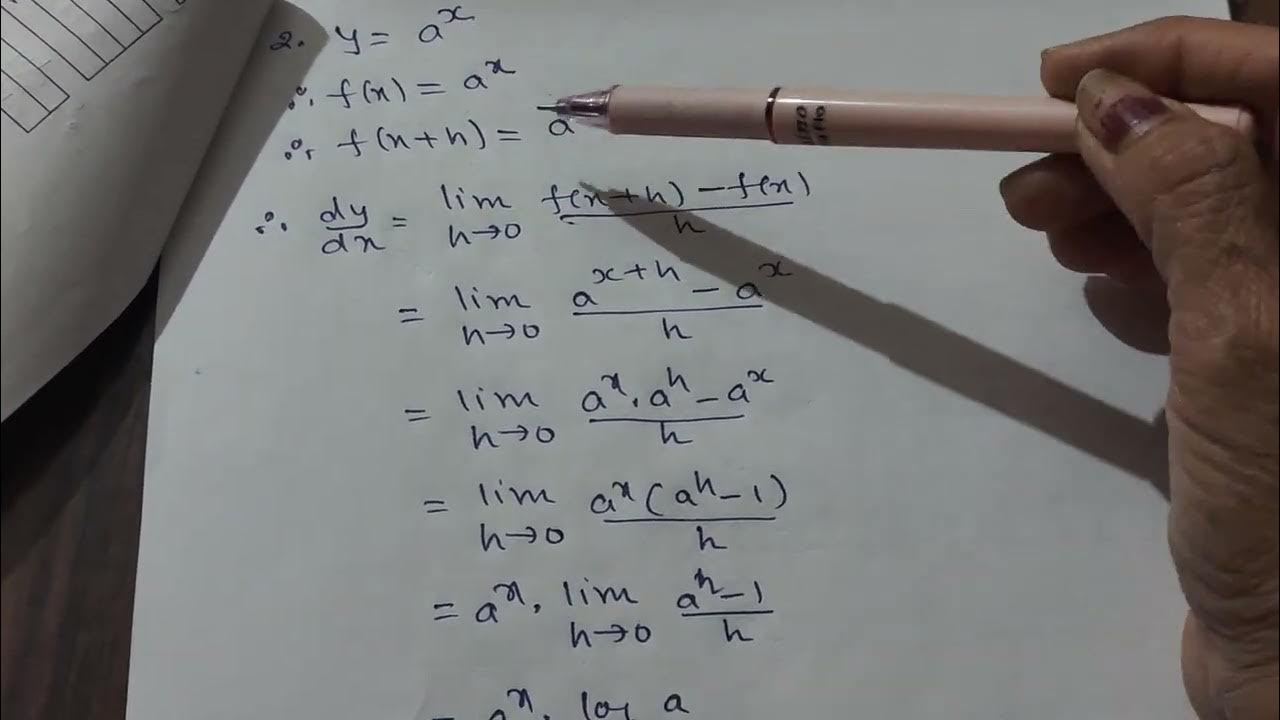 2. y = a^x
∴ f(x) = a^x
∴ f(x+h) = a
∴ dy/dx = lim h→0 f(x+h) - f(x) / h
= lim h→0 a^(x+h) - a^x / h
= lim h→0 a^x . a^h - a^x / h
= lim h→0 a^x (a^h - 1) / h
= a^x . lim h→0 a^h - 1 / h
= a^x . log a